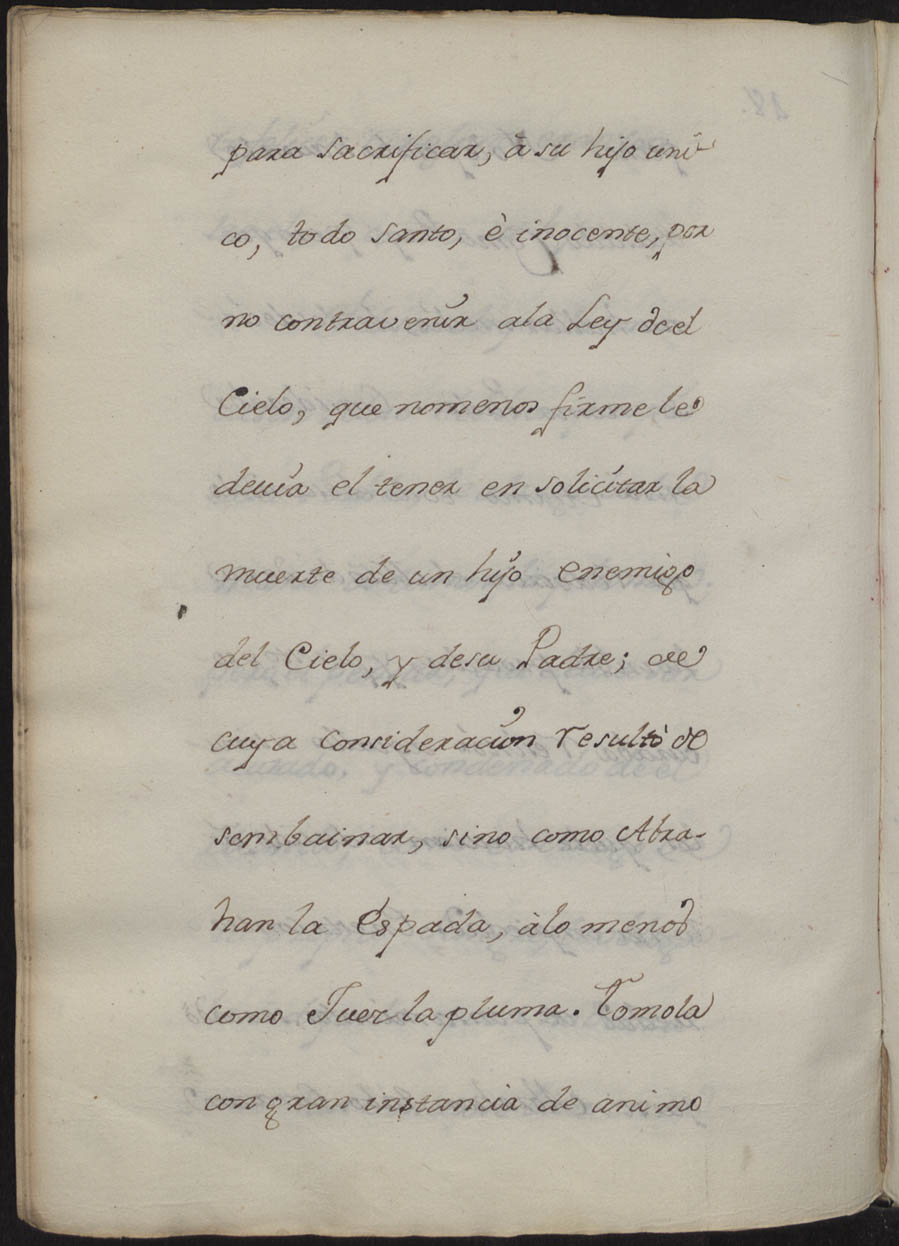 para sacrificar, à su hijo uni-
co, todo santo, è inocente, por
no contravenir ala Ley del
Cielo, que nomenos firme le
devia el tener en solicitar la
muerte de un hijo enemigo
del Cielo, y desu Padre; de
cuya consideracion resultò de
sembainar, sino como Abra-
han la Espada, àlo menos
como Juez la pluma. Tomola
con gran instancia de animo